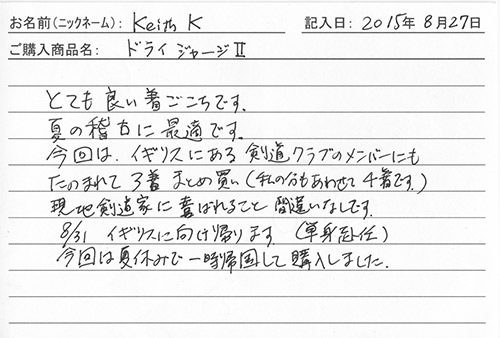 お名前(ニックネーム): Keith K 記入日: 2015年8月27日
ご購入商品名: ドライ ジャージⅡ
とても良い着ごこちです。
夏の稽古に最適です。
今回は、イギリスにある剣道クラブのメンバーにも
たのまれて3着まとめ買い(私の分もあわせて4着です。)
現地剣道家に喜ばれること間違いなしです。
8/31 イギリスに向け帰ります (単身赴任)
今回は夏休みで一時帰国して購入しました。